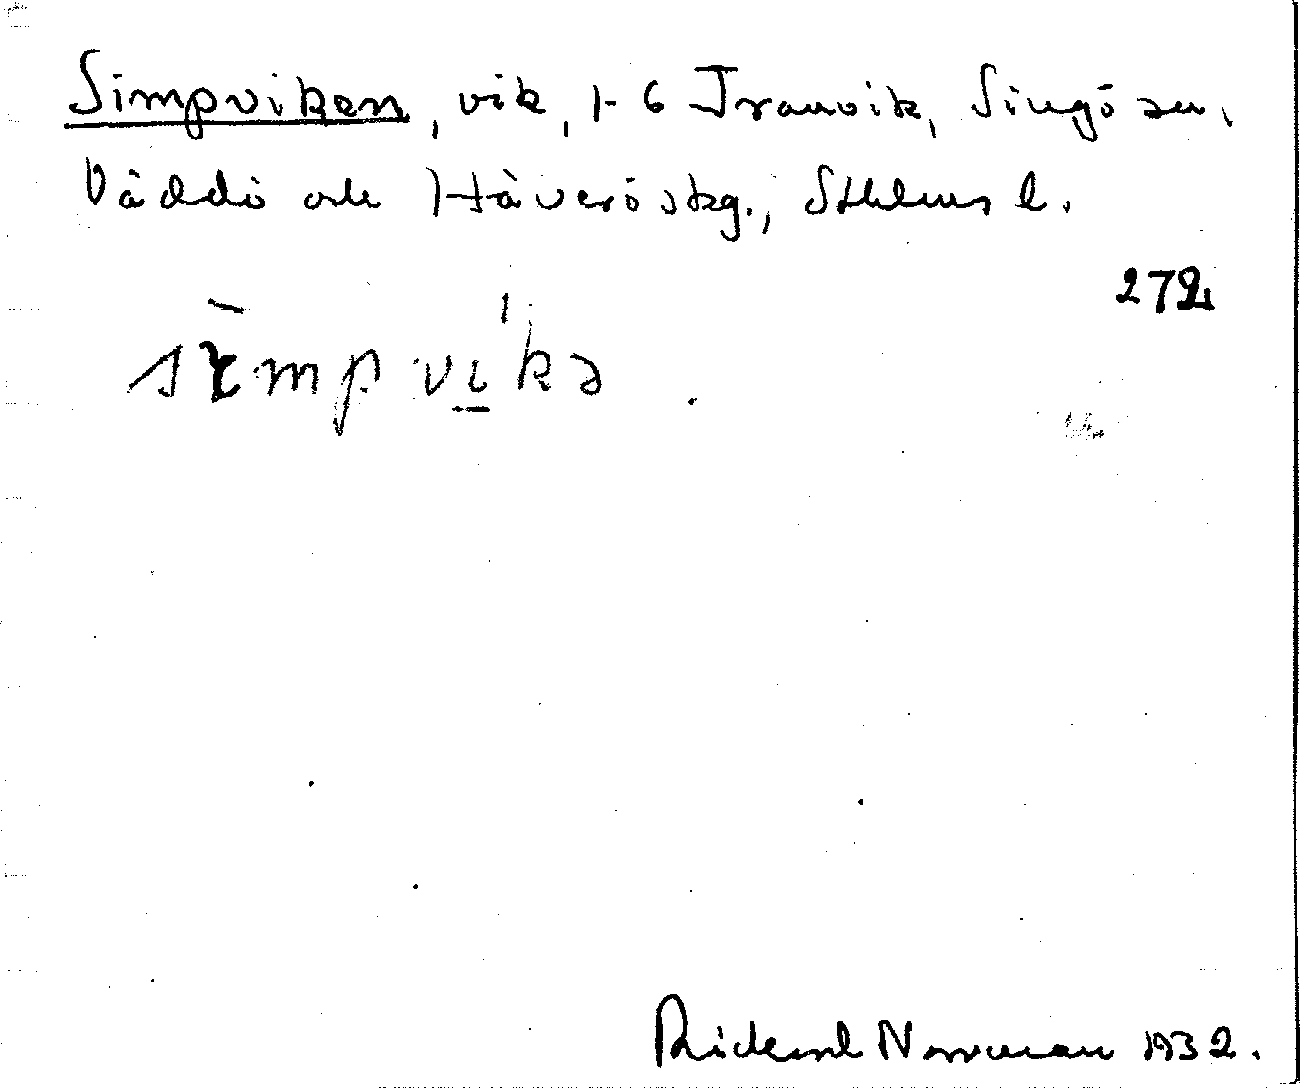 Simpviken, vik, 1-6 Tranvik, Singö sn,
Väddö och Häverö skg., Sthlms l.
272
sìmpvika
Rickard Norrman 1932.